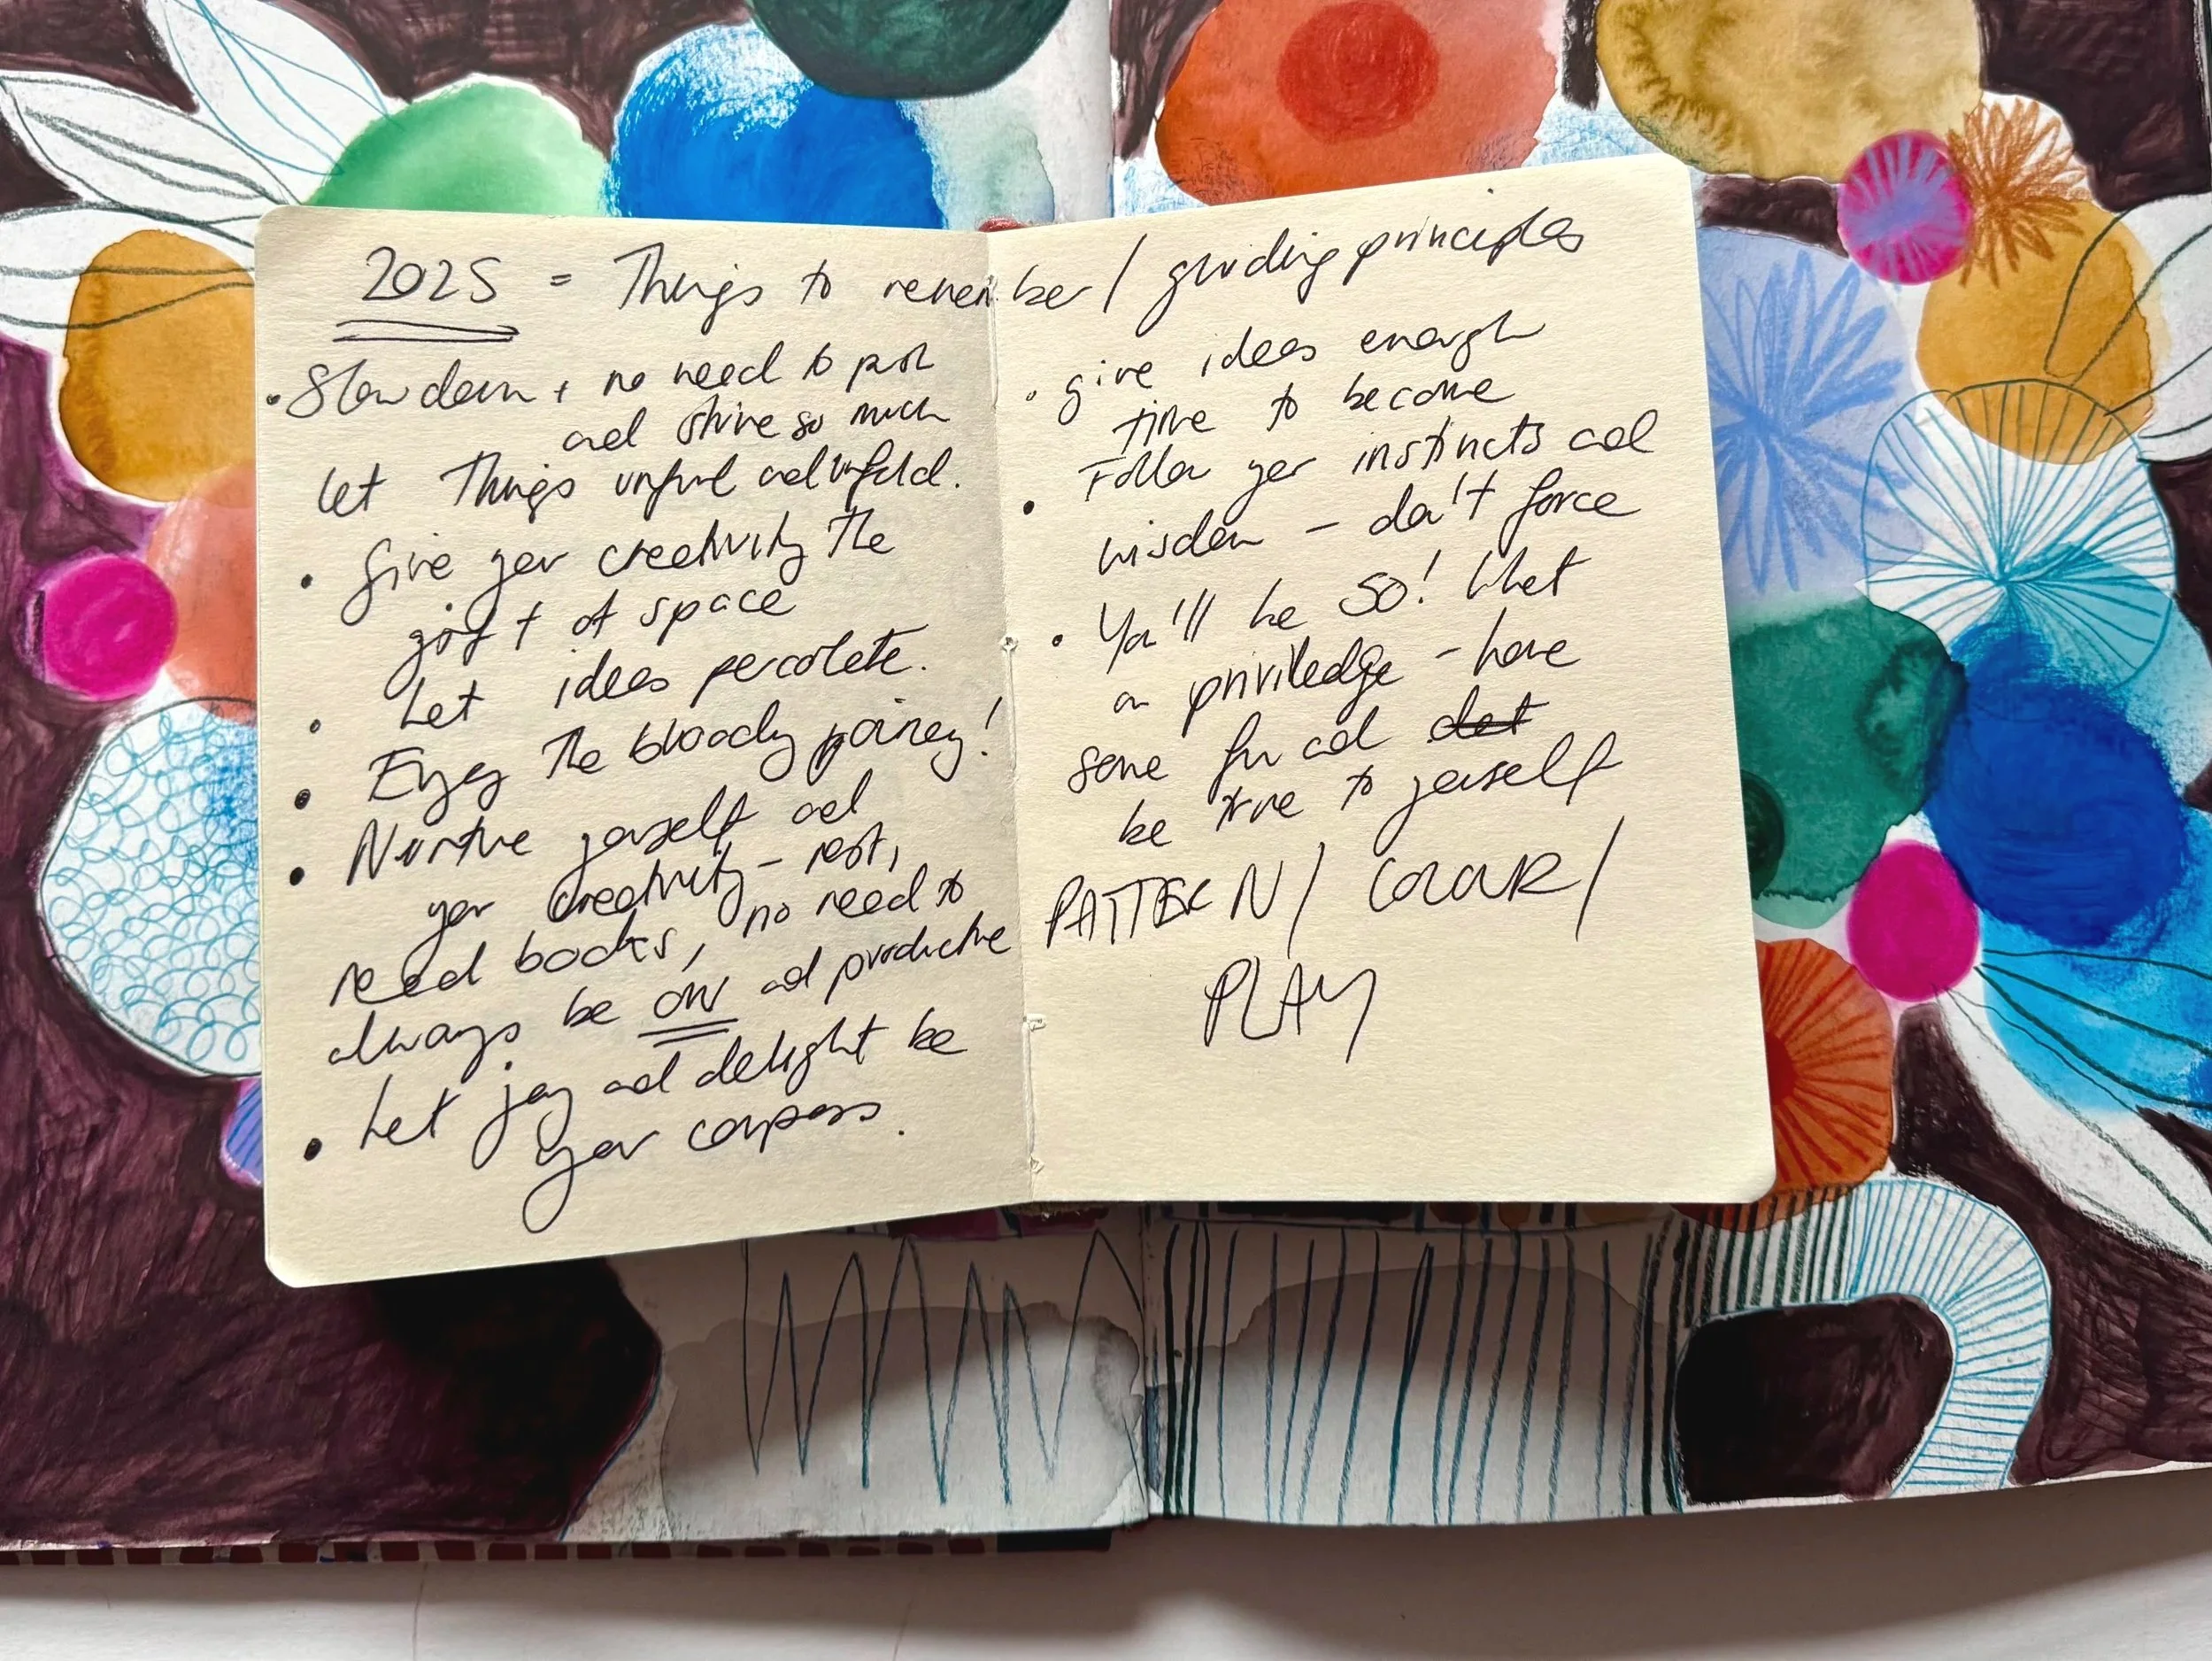 2025 = Things to remember / guiding principles
• Slow down + no need to push
and strive so much
let Things unfurl and unfold.
• Give your creativity The
gift of space
• Let ideas percolate.
• Enjoy The bloody journey!
• Nurture yourself and
your creativity – rest,
read books, no need to
always be ON and productive
• Let joy and delight be
your compass.
• give ideas enough
time to become
• Follow your instincts and
wisdom – don't force
• You'll be 50! What
a priviledge – have
some fun and
be true to yourself
PATTERN / COLOUR /
PLAY